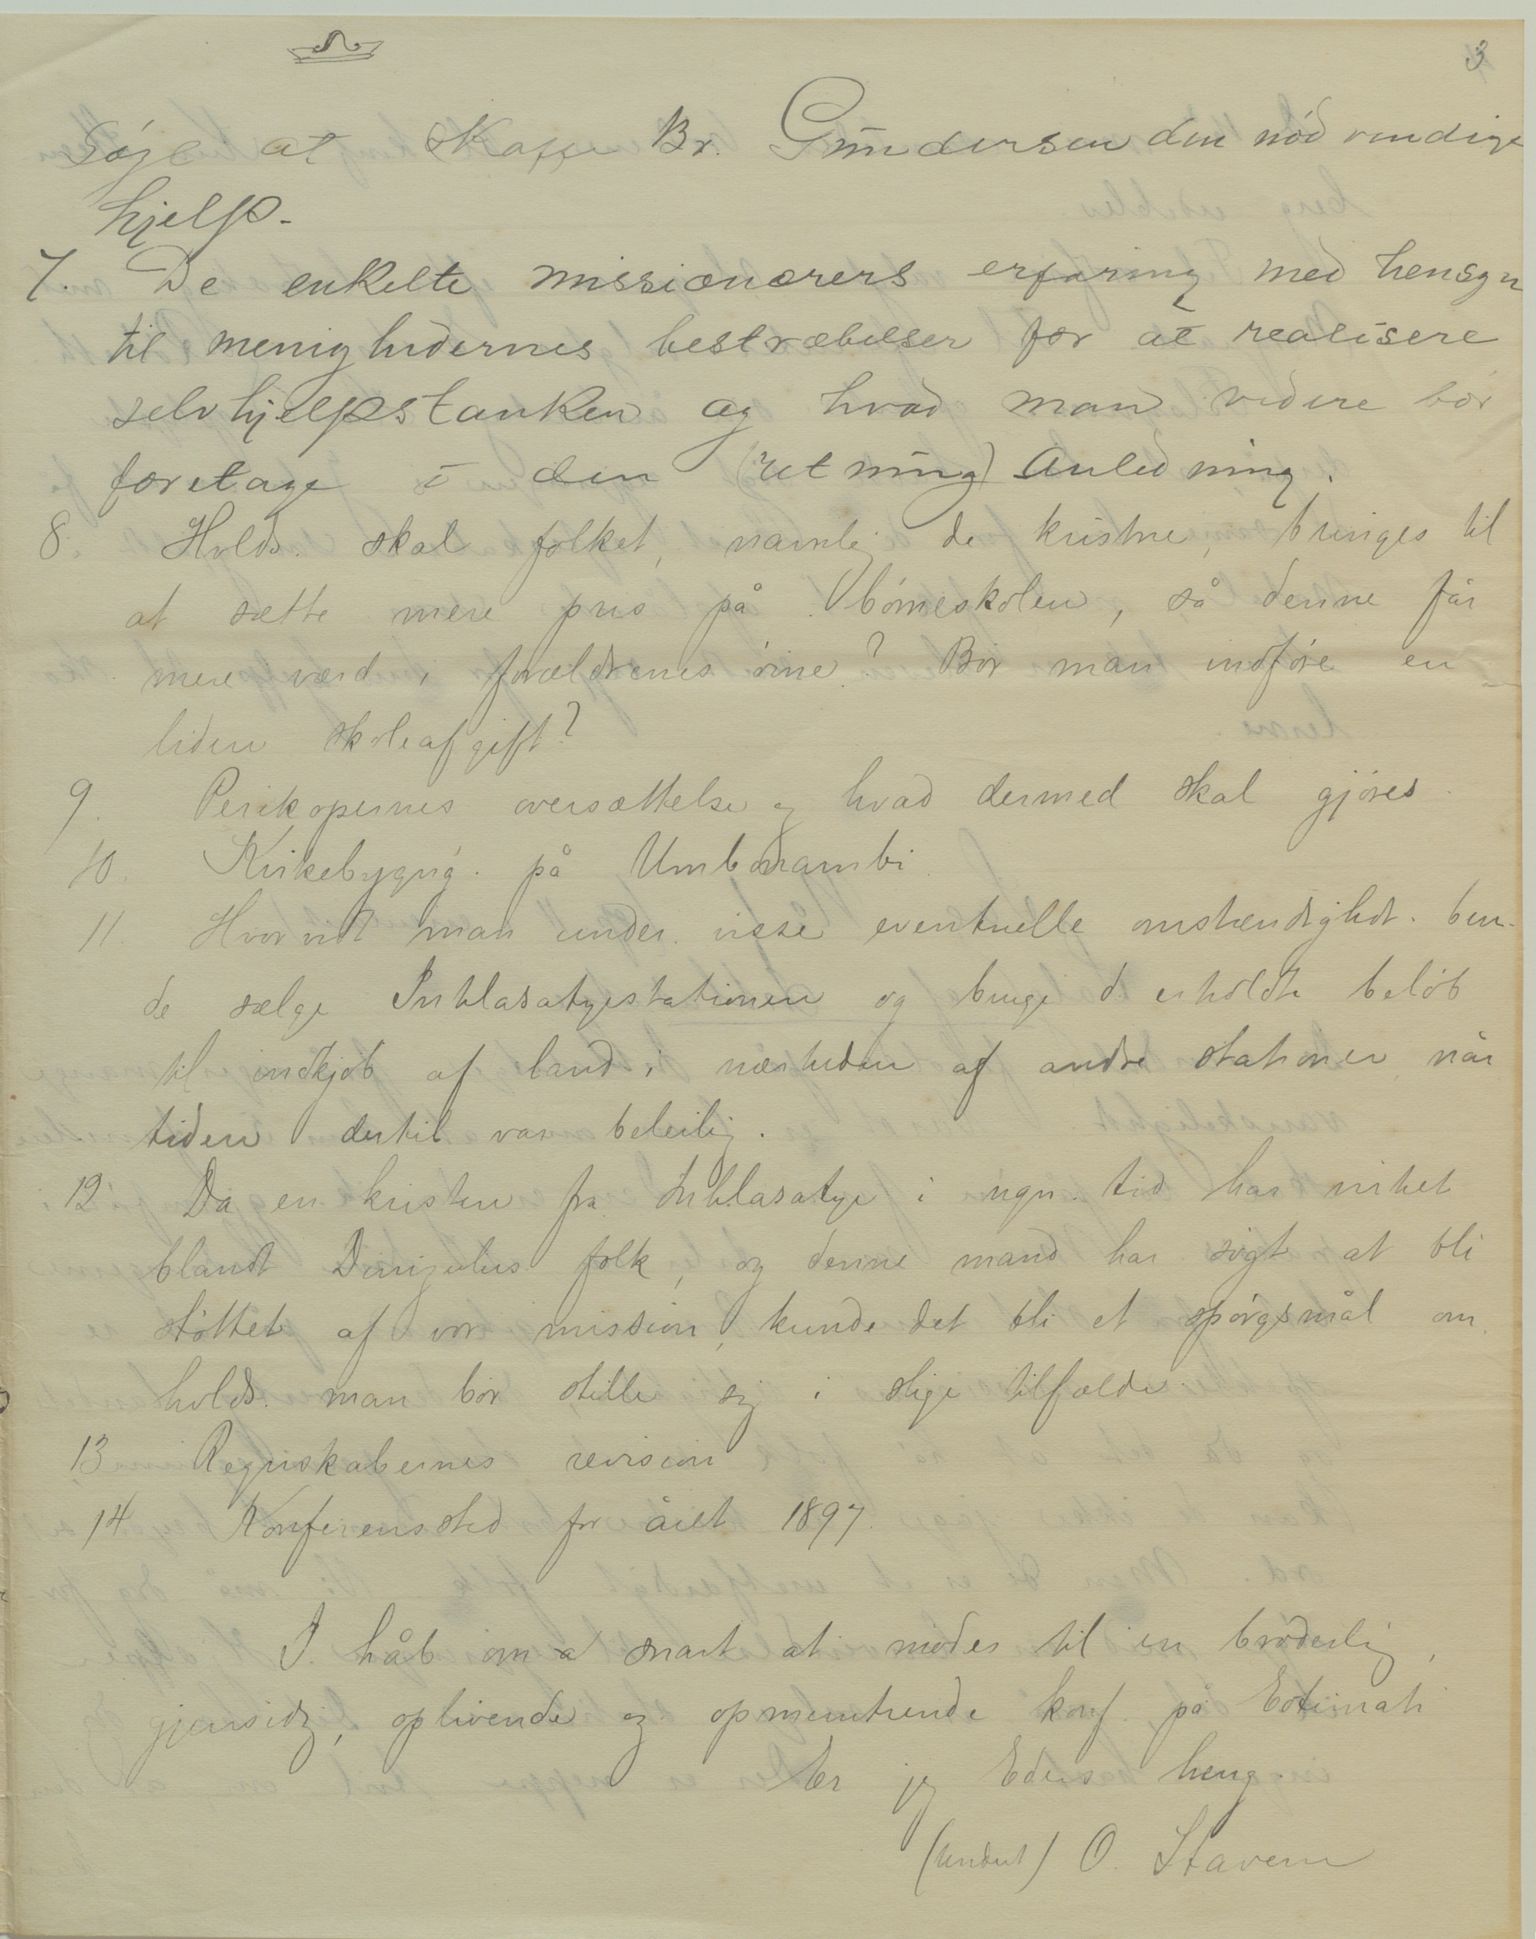 3
Søge at skaffe Br. Gundersen den nødvendige
hjelp.
7. De enkelte missionærers erfaring med hensyn
til menighedernes bestræbelser for at realisere
selvhjelpstanken og hvad man videre bør
foretage i den (retning) Anledning.
8. Hvlds. skal folket, navnlig de kristne, bringes til
at sætte mere pris på børneskolen, så denne får
mere værd i forældrenes øine? Bør man indføre en
liden skoleafgift?
9. Perikopernes oversættelse og hvad dermed skal gjøres.
10. Kirkebygng. på Umbonambi
11. Hvorvidt man under visse eventuelle omstændighdr. bur-
de sælge Inhlasatyestationen og bruge d. erholdte beløb
til indkjøb af land i nærheden af andre stationer når
tiden dertil var beleilig.
12 Da en kristen fra Inhlasatye i ngn. tid har virket
blandt Dinizulus folk, og denne mand har søgt at bli
støttet af vor mission, kunde det bli et spørgsmål om
hvlds. man bør stille sig i slige tilfælde.
13 Regnskabernes revision
14 Konferenssted for året 1897.
I håb om snart at mødes til en broderlig,
gjensidig, oplivende og opmuntrende konf. på Eotimati
er jeg Eders heng.
(Undert) O. Stavem